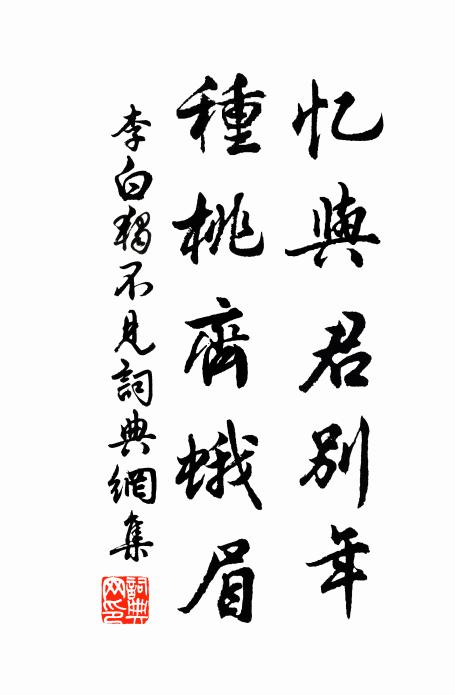 忆與君别年
種桃齊蛾眉
李白獨不見詞典網集
詞典網印